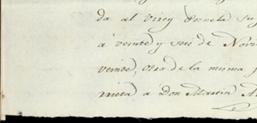 da al Virey
a veinte y seis de Nov
veinte, otra de la misma
a Don Martin